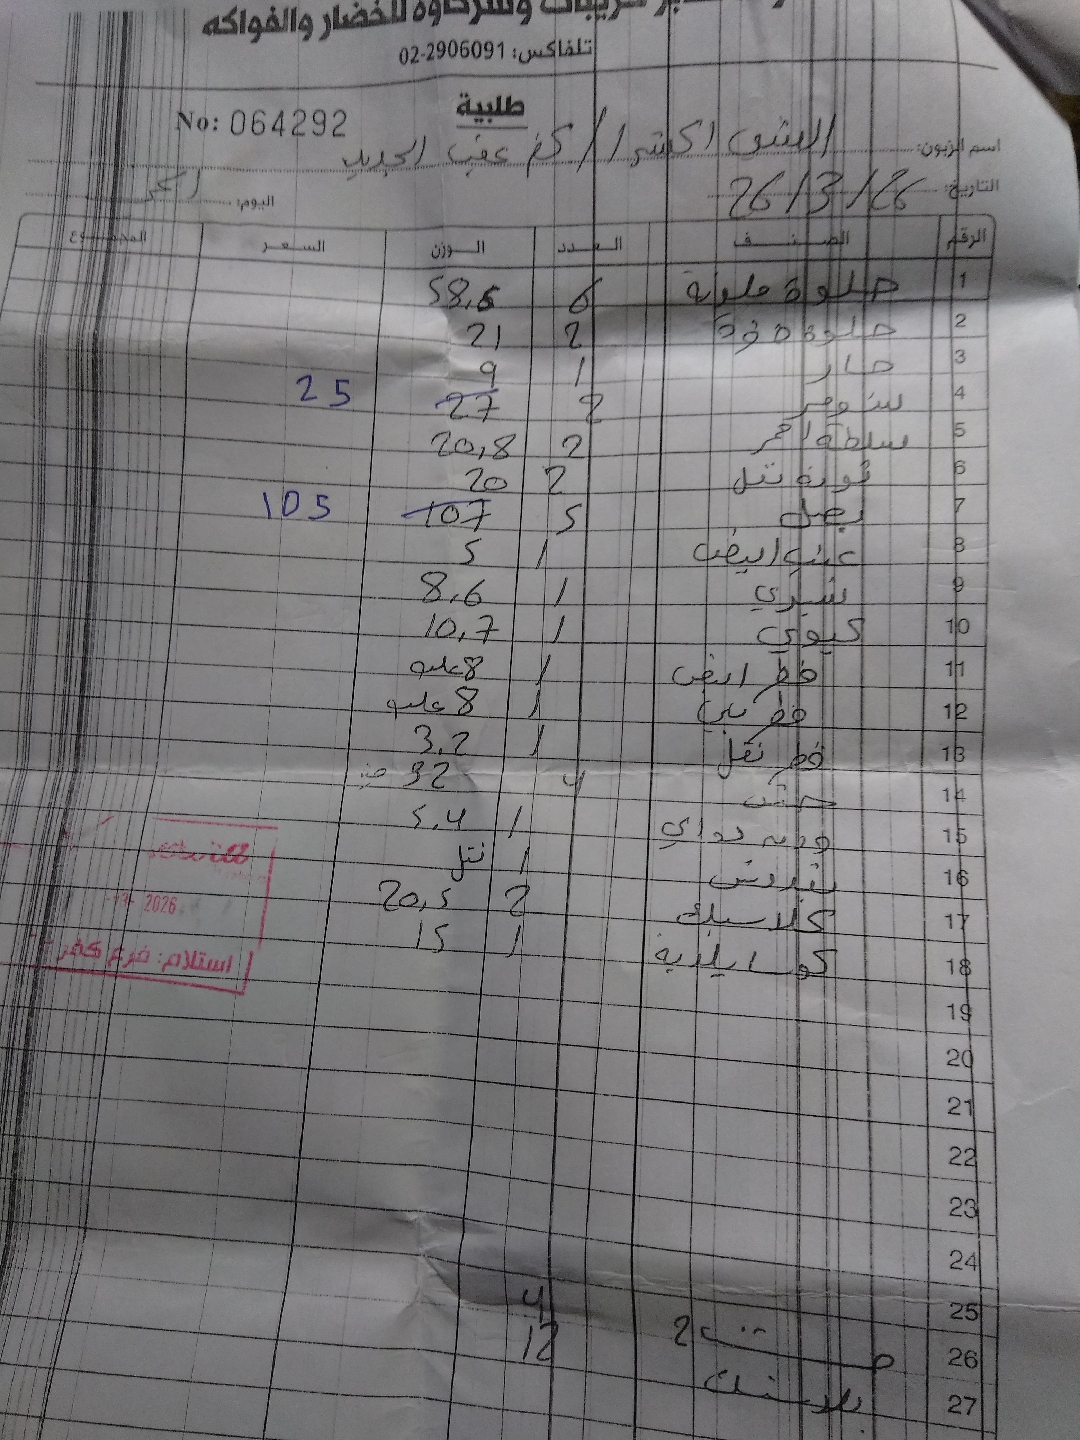 وشركاؤه للخضار والفواكه
تلفاكس: 02-2906091
طلبية
No: 064292
اسم الزبون: / كفر عقب الجديد
التاريخ: 26/3/26
اليوم:
الرقم الصنف العدد الوزن السعر المجموع
1 حلوة ملونة 6 58,6
2 حلوة 2 21
3 حار 1 9
4 2 27 25
5 سلطة احمر 2 20,8
6 2 20
7 بصل 5 107 105
8 عنب ابيض 1 5
9 شيري 1 8,6
10 كيوي 1 10,7
11 فطر ابيض 1 8 علبه
12 فطر بني 1 8 علبه
13 فطر نقل 1 3.2
14 4 32
15 ورق دوالي 1 5,4
16 بقدونس 1 نتل
17 كلاسيك 2 20,5
18 كوسا بلدية 1 15
19
20
21
22
23
24
25 4
26 2 12
27 بلاستك
2026
استلام: فرع كفر